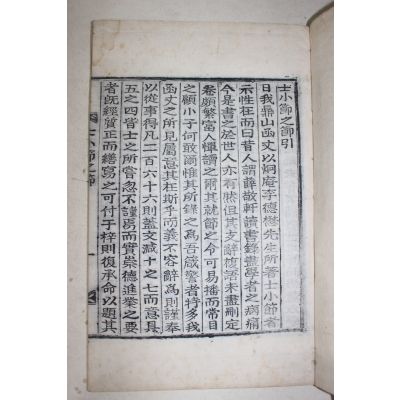 士小節之節引
日我鼎山函丈以炯庵李德懋先生所著士小節者
示性狂而曰昔人謂薛敬軒讀書錄盡學者之病痛
今是書之於世人亦有然但其支辭複語未盡刪定
卷頗繁富人憚讀之爾其就節之令可易播而常目
之顧小子何敢爾惟其所錄之爲吾儆警者特多我
函丈之所見屬意其在斯乎而義不容辭焉則謹奉
以從事得凡二百六十六則蓋文減十之七而意具
五之四皆士之所嘗忽不謹焉而實崇德進業之要
者旣經質正而繕寫之可付于梓則復承命以題其
士小節之節